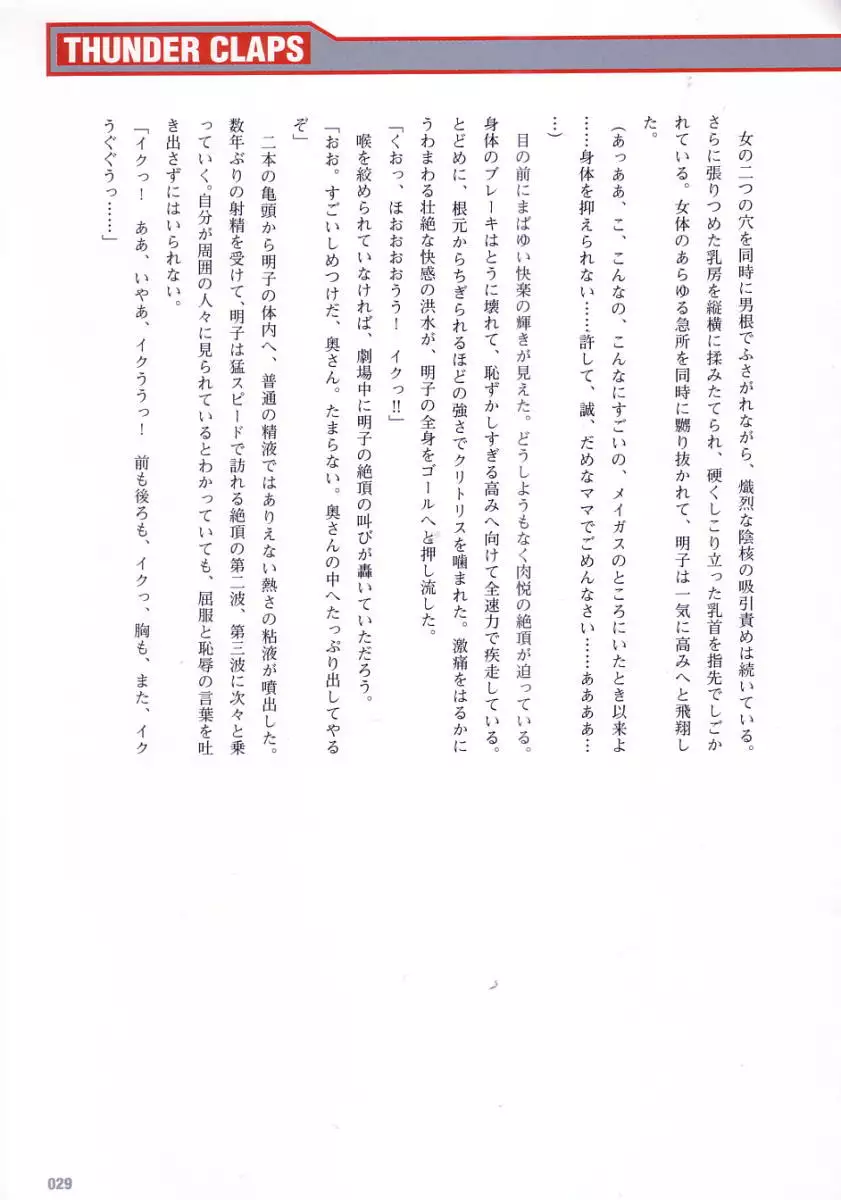 THUNDER CLAPS
　女の二つの穴を同時に男根でふさがれながら、熾烈な陰核の吸引責めは続いている。
さらに張りつめた乳房を縦横に揉みたてられ、硬くしこり立った乳首を指先でしごか
れている。女体のあらゆる急所を同時に嬲り抜かれて、明子は一気に高みへと飛翔し
た。
（あっああ、こ、こんなの、こんなにすごいの、メイガスのところにいたとき以来よ
……身体を抑えられない……許して、誠、だめなママでごめんなさい……ああああ…
…）
　目の前にまばゆい快楽の輝きが見えた。どうしようもなく肉悦の絶頂が迫っている。
身体のブレーキはとうに壊れて、恥ずかしすぎる高みへ向けて全速力で疾走している。
とどめに、根元からちぎられるほどの強さでクリトリスを噛まれた。激痛をはるかに
うわまわる壮絶な快感の洪水が、明子の全身をゴールへと押し流した。
「くおっ、ほおおおおうう！　イクっ!!」
　喉を絞められていなければ、劇場中に明子の絶頂の叫びが轟いていただろう。
「おお。すごいしめつけだ、奥さん。たまらない。奥さんの中へたっぷり出してやる
ぞ」
　二本の亀頭から明子の体内へ、普通の精液ではありえない熱さの粘液が噴出した。
数年ぶりの射精を受けて、明子は猛スピードで訪れる絶頂の第二波、第三波に次々と乗
っていく。自分が周囲の人々に見られているとわかっていても、屈服と恥辱の言葉を吐
き出さずにはいられない。
「イクっ！　ああ、いやあ、イクううっ！　前も後ろも、イクっ、胸も、また、イク
うぐぐうっ……」
029